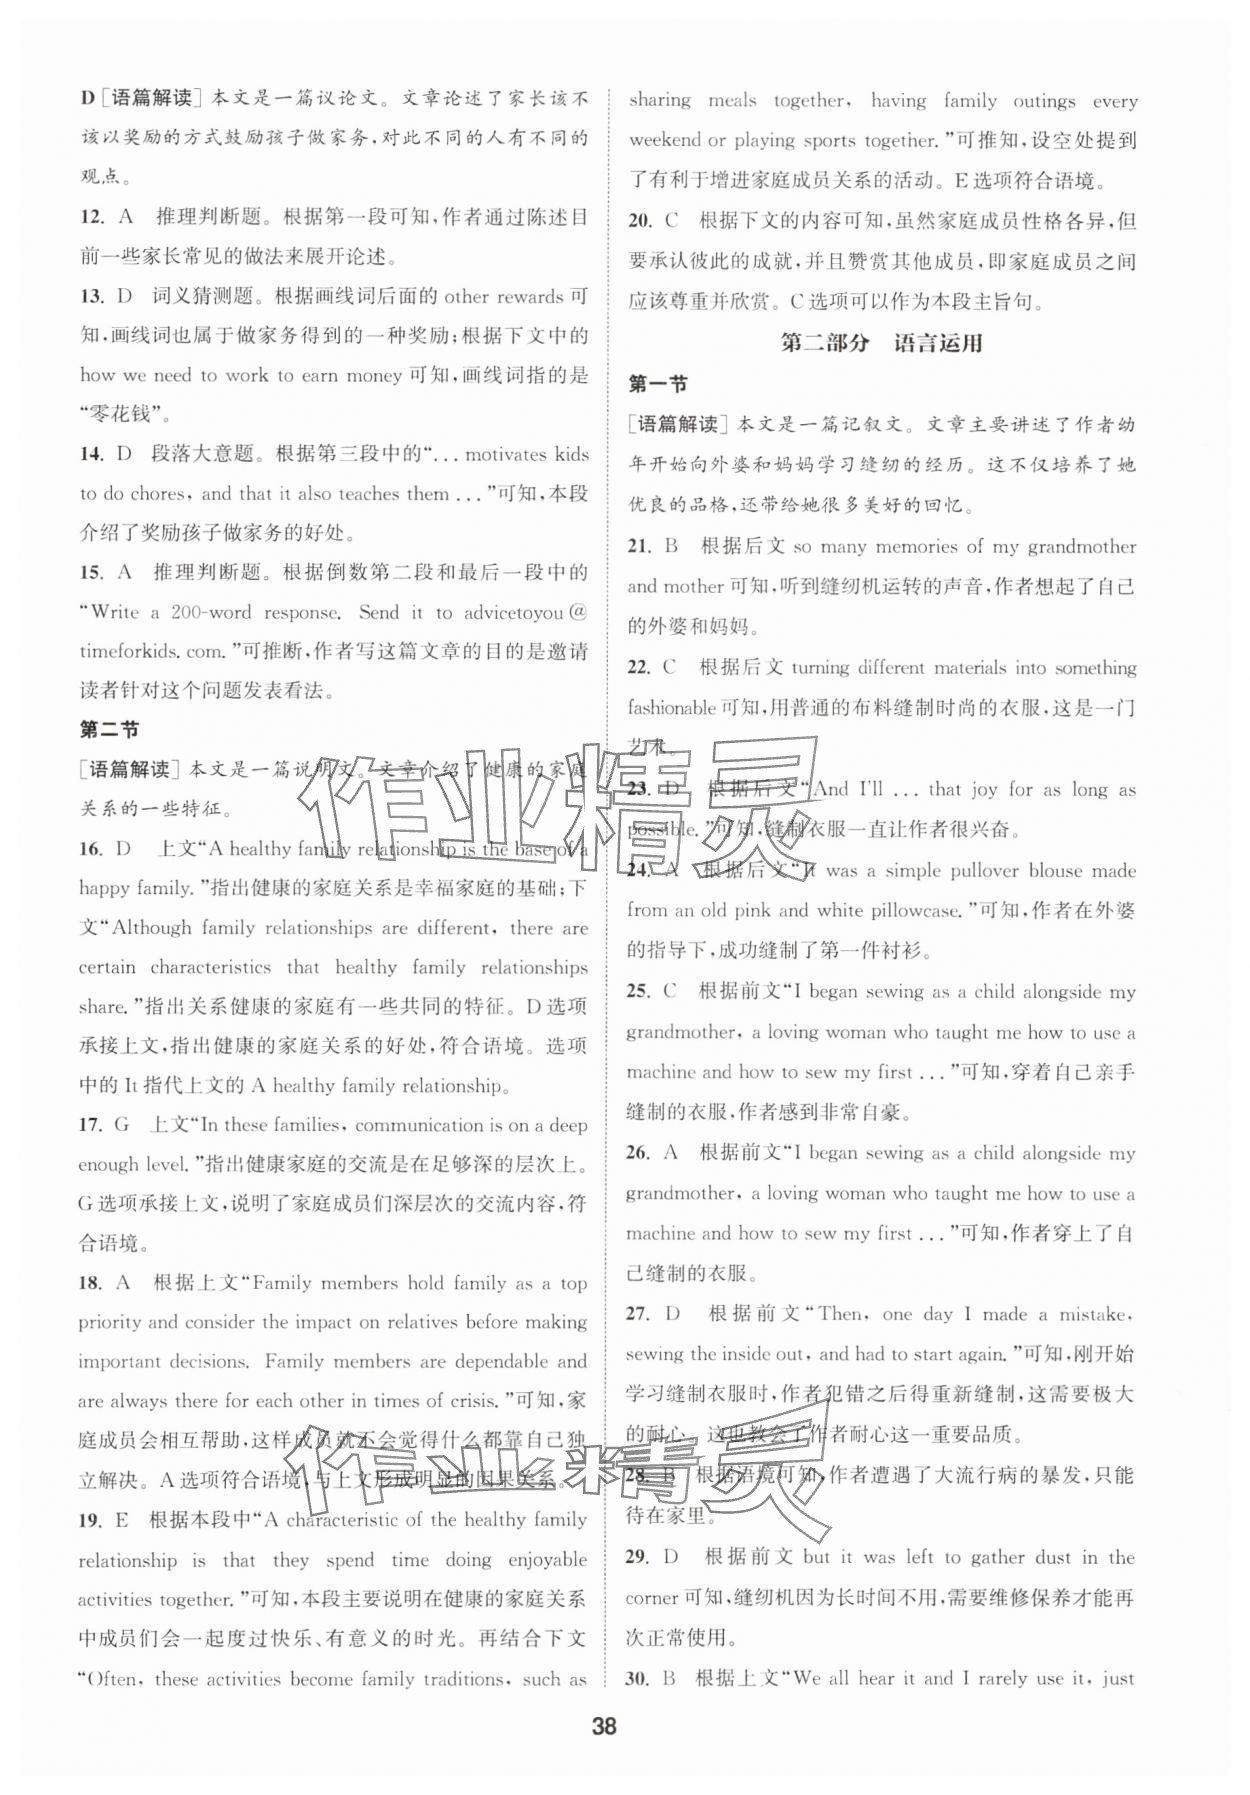 D [语篇解读] 本文是一篇议论文。文章论述了家长该不
该以奖励的方式鼓励孩子做家务,对此不同的人有不同的
观点。
12. A 推理判断题。根据第一段可知,作者通过陈述目
前一些家长常见的做法来展开论述。
13. D 词义猜测题。根据画线词后面的 other rewards 可
知,画线词也属于做家务得到的一种奖励;根据下文中的
how we need to work to earn money 可知,画线词指的是
“零花钱”。
14. D 段落大意题。根据第三段中的“... motivates kids
to do chores, and that it also teaches them ...”可知,本段
介绍了奖励孩子做家务的好处。
15. A 推理判断题。根据倒数第二段和最后一段中的
“Write a 200-word response. Send it to advicetoyou@
timeforkids. com. ”可推断,作者写这篇文章的目的是邀请
读者针对这个问题发表看法。
第二节
[语篇解读] 本文是一篇说明文。文章介绍了健康的家庭
关系的一些特征。
16. D 上文“A healthy family relationship is the base of a
happy family. ”指出健康的家庭关系是幸福家庭的基础;下
文“Although family relationships are different, there are
certain characteristics that healthy family relationships
share. ”指出关系健康的家庭有一些共同的特征。D 选项
承接上文,指出健康的家庭关系的好处,符合语境。选项
中的 It 指代上文的 A healthy family relationship。
17. G 上文“In these families, communication is on a deep
enough level. ”指出健康家庭的交流是在足够深的层次上。
G 选项承接上文,说明了家庭成员们深层次的交流内容,符
合语境。
18. A 根据上文“Family members hold family as a top
priority and consider the impact on relatives before making
important decisions. Family members are dependable and
are always there for each other in times of crisis. ”可知,家
庭成员会相互帮助,这样成员就不会觉得什么都靠自己独
立解决。A 选项符合语境,与上文形成明显的因果关系。
19. E 根据本段中“A characteristic of the healthy family
relationship is that they spend time doing enjoyable
activities together. ”可知,本段主要说明在健康的家庭关系
中成员们会一起度过快乐、有意义的时光。再结合下文
“Often, these activities become family traditions, such as
sharing meals together, having family outings every
weekend or playing sports together. ”可推知,设空处提到
了有利于增进家庭成员关系的活动。E 选项符合语境。
20. C 根据下文的内容可知,虽然家庭成员性格各异,但
要承认彼此的成就,并且赞赏其他成员,即家庭成员之间
应该尊重并欣赏。C 选项可以作为本段主旨句。
第二部分 语言运用
第一节
[语篇解读] 本文是一篇记叙文。文章主要讲述了作者幼
年开始向外婆和妈妈学习缝纫的经历。这不仅培养了她
优良的品格,还带给她很多美好的回忆。
21. B 根据后文 so many memories of my grandmother
and mother 可知,听到缝纫机运转的声音,作者想起了自己
的外婆和妈妈。
22. C 根据后文 turning different materials into something
fashionable 可知,用普通的布料缝制时尚的衣服,这是一门
艺术。
23. D 根据后文“And I'll ... that joy for as long as
possible. ”可知,缝制衣服一直让作者很兴奋。
24. A 根据后文“It was a simple pullover blouse made
from an old pink and white pillowcase. ”可知,作者在外婆
的指导下,成功缝制了第一件衬衫。
25. C 根据前文“I began sewing as a child alongside my
grandmother, a loving woman who taught me how to use a
machine and how to sew my first ... ”可知,穿着自己亲手
缝制的衣服,作者感到非常自豪。
26. A 根据前文“I began sewing as a child alongside my
grandmother, a loving woman who taught me how to use a
machine and how to sew my first ... ”可知,作者穿上了自
己缝制的衣服。
27. D 根据前文“Then, one day I made a mistake,
sewing the inside out, and had to start again. ”可知,刚开始
学习缝制衣服时,作者犯错之后得重新缝制,这需要极大
的耐心。这也教会了作者耐心这一重要品质。
28. B 根据语境可知,作者遭遇了大流行病的暴发,只能
待在家里。
29. D 根据前文 but it was left to gather dust in the
corner 可知,缝纫机因为长时间不用,需要维修保养才能再
次正常使用。
30. B 根据上文“We all hear it and I rarely use it, just
38
作业精灵
作业精灵